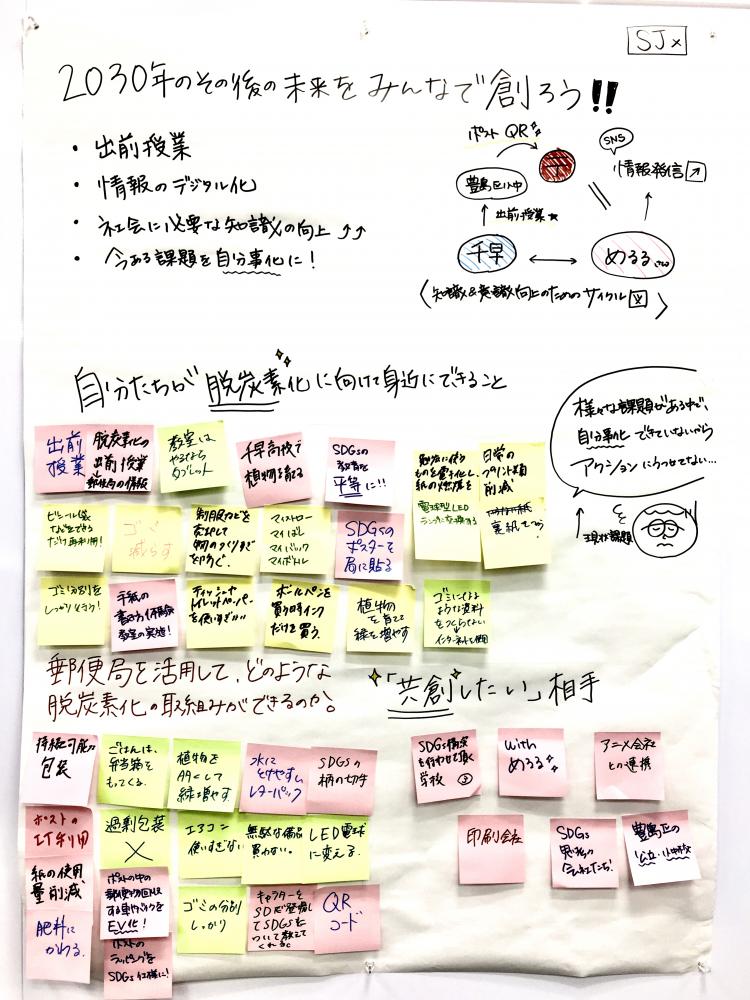 SJ
2030年のその後の未来をみんなで創ろう!!
・出前授業
・情報のデジタル化
・社会に必要な知識の向上↑↑
・今ある課題を自分事化に!
ポストQR
豊島区小中
〒
SNS
情報発信
↑出前授業★
千早
⟷
めるる
〈知識&意識向上のためのサイクル〉
自分たちが脱炭素化に向けて身近にできること
様々な課題がある中で、
自分事化できていないから
アクションにうつせてない…
↑現状課題
出前
授業
脱炭素化の
出前授業
教室は
タブレット
千早高校で
植物を育てる
SDGsの
教育を
平等に!!
勉強に使う
ものを電子化し、
紙の
電球型LED
ランプに交換する
日常の
プリント類
削減
裏紙
ビニール袋
だけ再利用!
ゴミ
減らす
制服などを
物のつくりすぎ
を防ぐ。
マイストロー
マイはし
マイバック
マイボトル
SDGsの
ポスターを
局に貼る
ゴミ分別を
しっかり
手紙の
書き方
教室の実施!
ティッシュや
トイレットペーパー
を使いすぎない
ボールペンを
買う時インク
だけを買う。
植物
を育てて
緑を増やす
ゴミになる
ような資料
をつくらない
↓
インターネットを使用
郵便局を活用して、どのような
脱炭素化の取組みができるのか。
「共創したい」相手
持続可能な
包装
ごはんは、
弁当箱を
もってくる。
植物を
多くして
緑増やす。
水に
とけやすい
レターパック
SDGsの
柄の切手
ポストの
IT利用
過剰包装
×
エアコン
使いすぎない
無駄な備品
買わない。
LED電球
に変える。
紙の使用
量削減
ポストの中の
郵便物回収
する車やバイクを
EV化!
ゴミの分別
しっかり
キャラクターを
SDGsを
ついて教えて
くれる。
QR
コード
肥料に
かわる。
ポストの
ラッピングを
SDGs仕様に!
SDGs授業
を行わせて頂く
学校
with
めるる
アニメ会社
との連携
印刷会社
SDGs
思いの
会社たち!
豊島区の
公立・小中学校